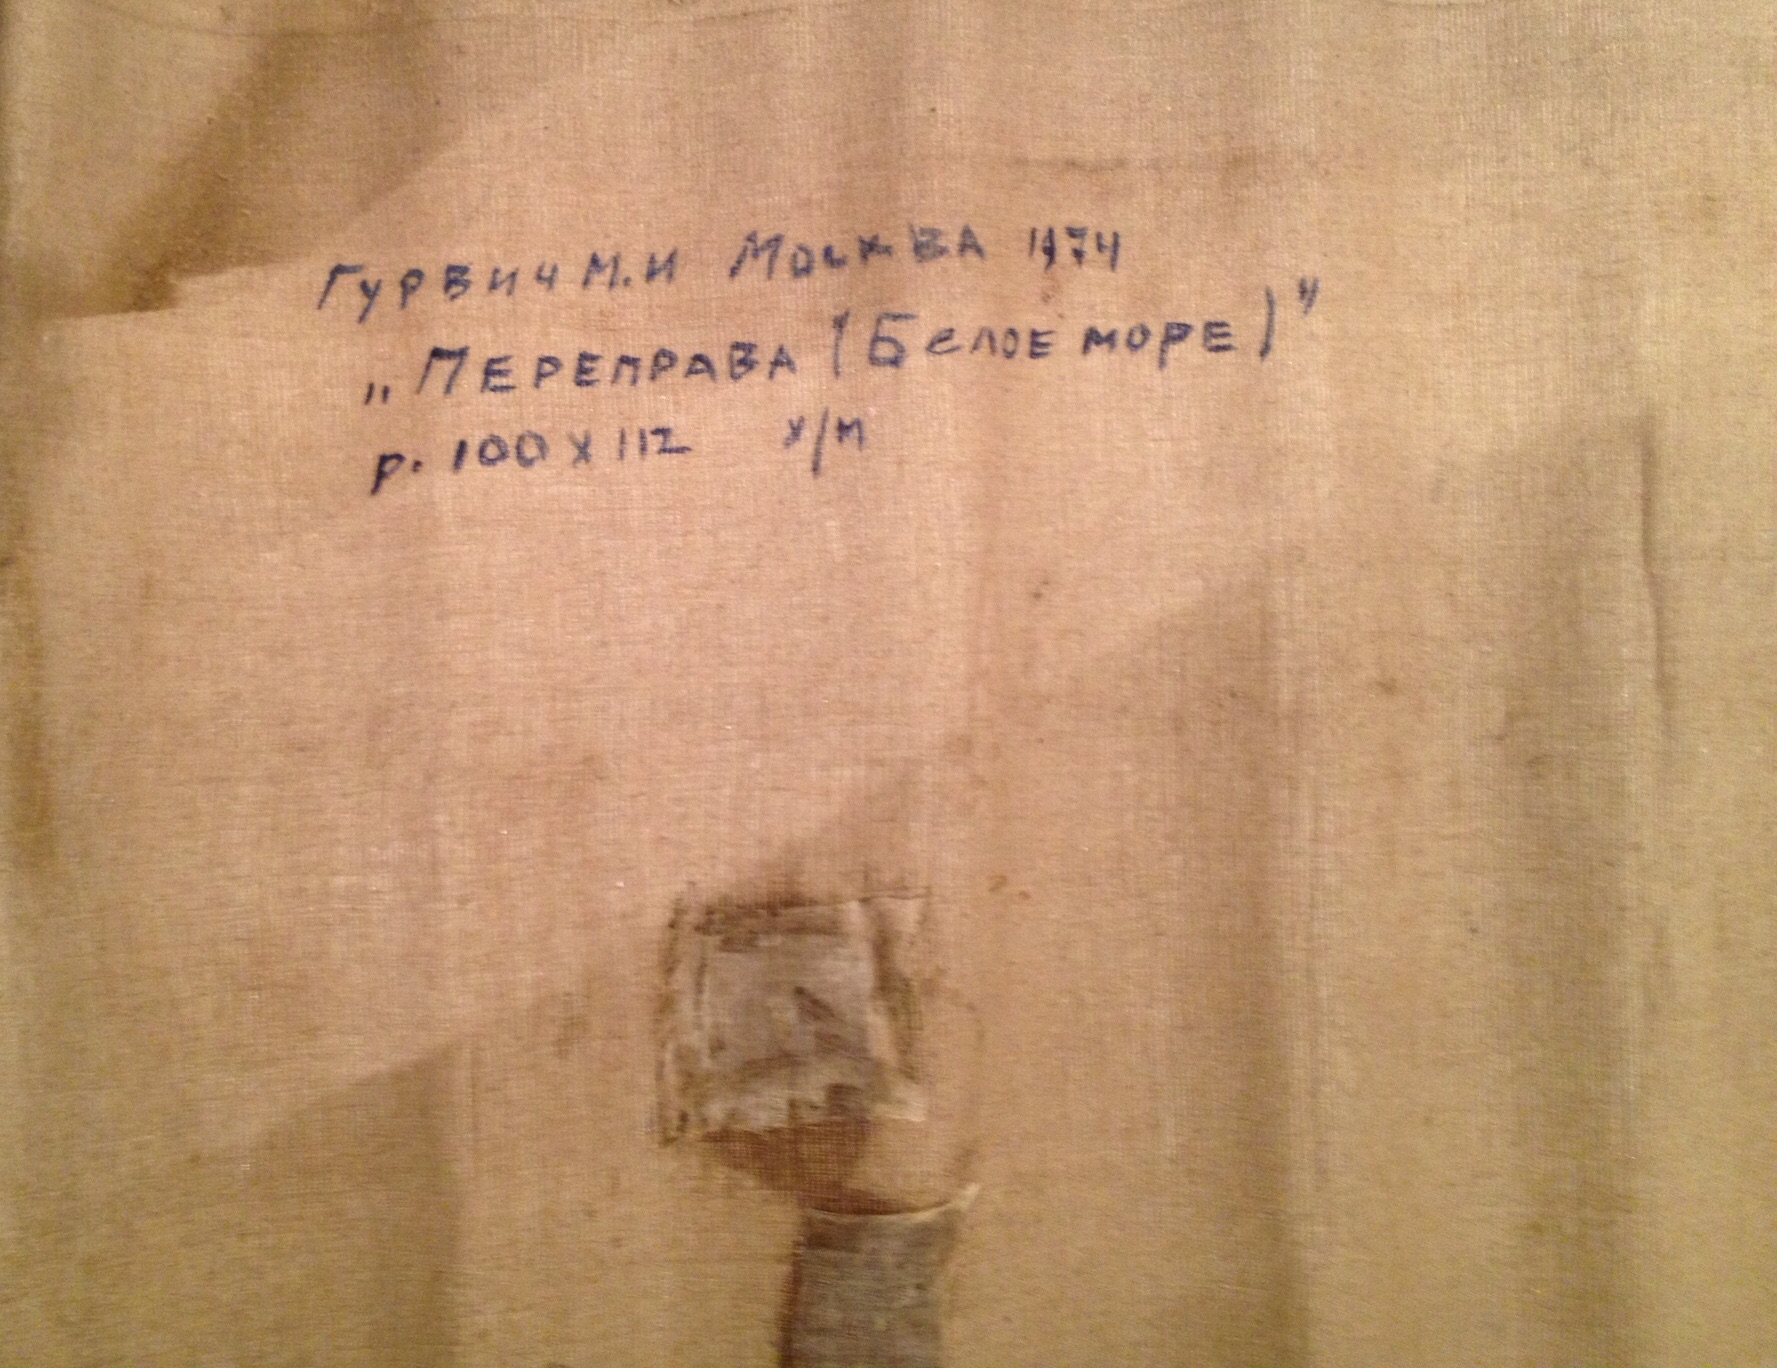 Гурвич М.И Москва 1974
„Переправа (Белое море)"
р. 100 х 112 х/м